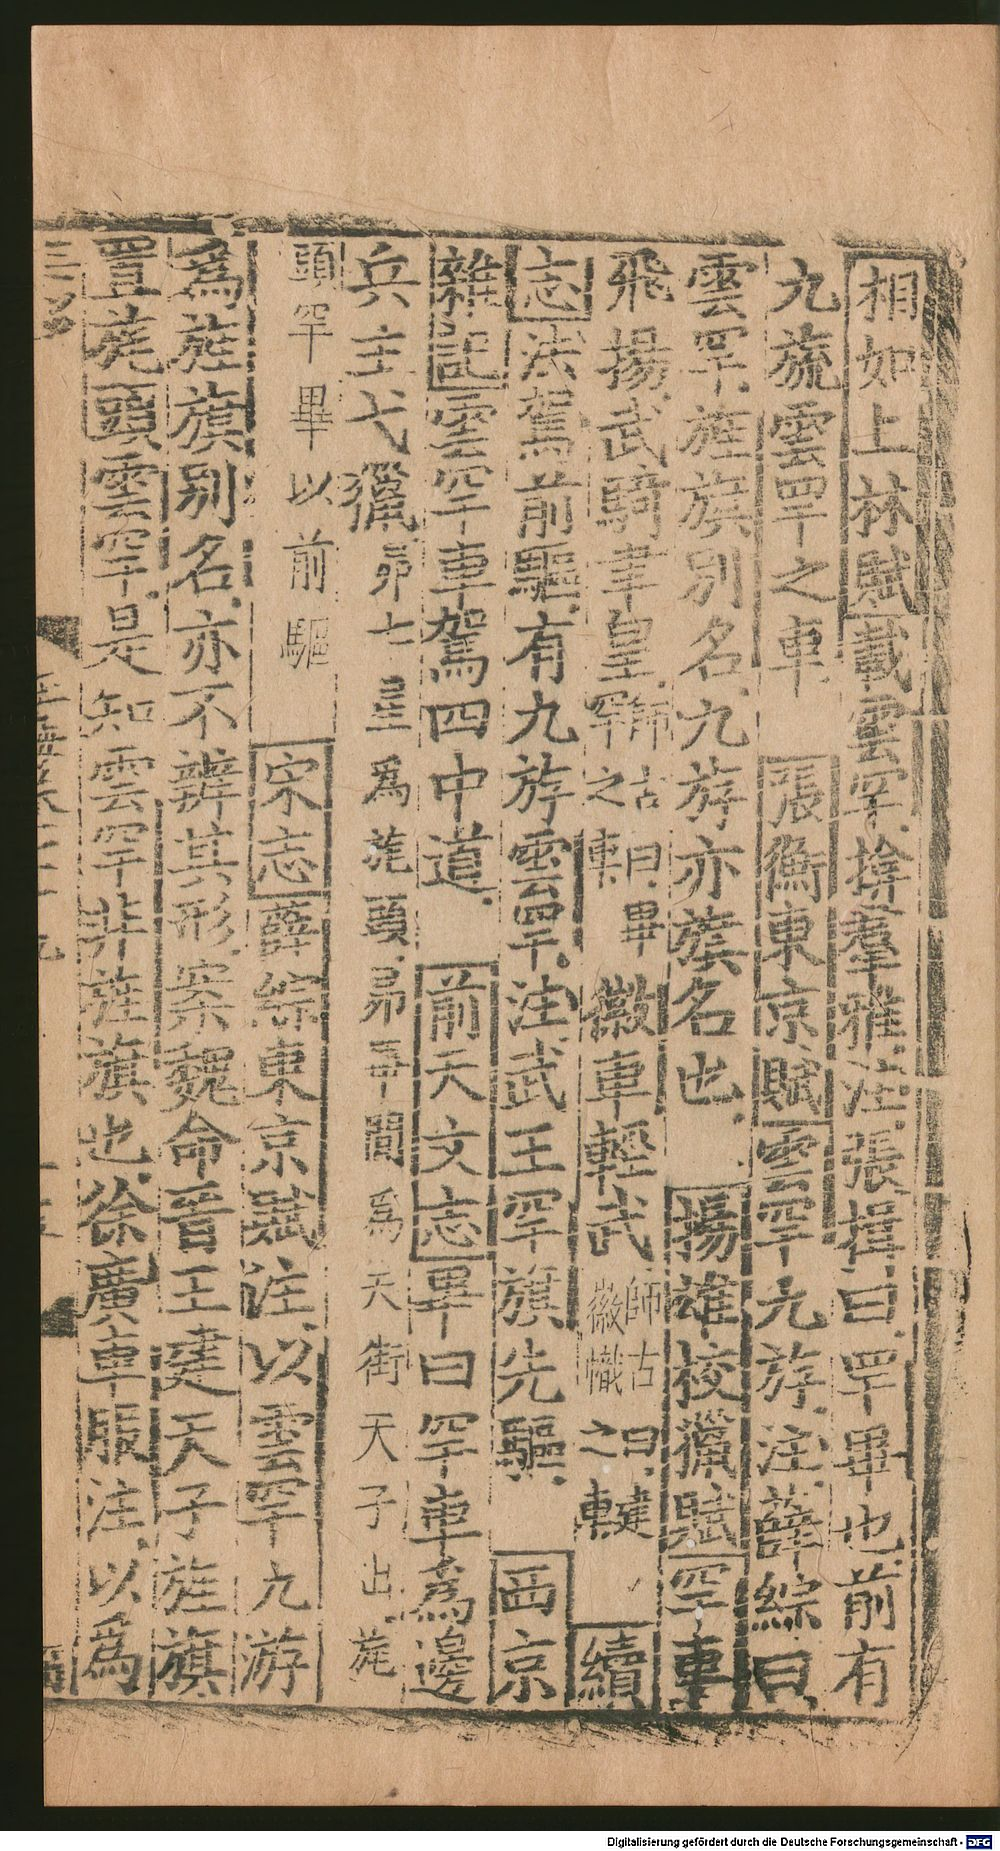 相如上林賦載雲罕揜羣雅注張揖曰罕畢也前有
九旒雲罕之車　張衡東京賦雲罕九斿注薛綜曰
雲罕旌旗別名九斿亦旗名也　揚雄校獵賦罕車
飛揚武騎聿皇師古曰畢罕之車徽車輕武師古曰徽幟之車　續
志法駕前驅有九斿雲罕注武王罕旗先驅　西京
雜記雲罕車駕四中道　前天文志畢曰罕車爲邊
兵主弋獵昴七星爲旄頭昴畢間爲天街天子出旄
頭罕畢以前驅　宋志薛綜東京賦注以雲罕九游
爲旌旗別名亦不辨其形案魏命晉王建天子旌旗
置旄頭雲罕是知雲罕非旌旗也徐廣車服注以爲
Digitalisierung gefördert durch die Deutsche Forschungsgemeinschaft - DFG